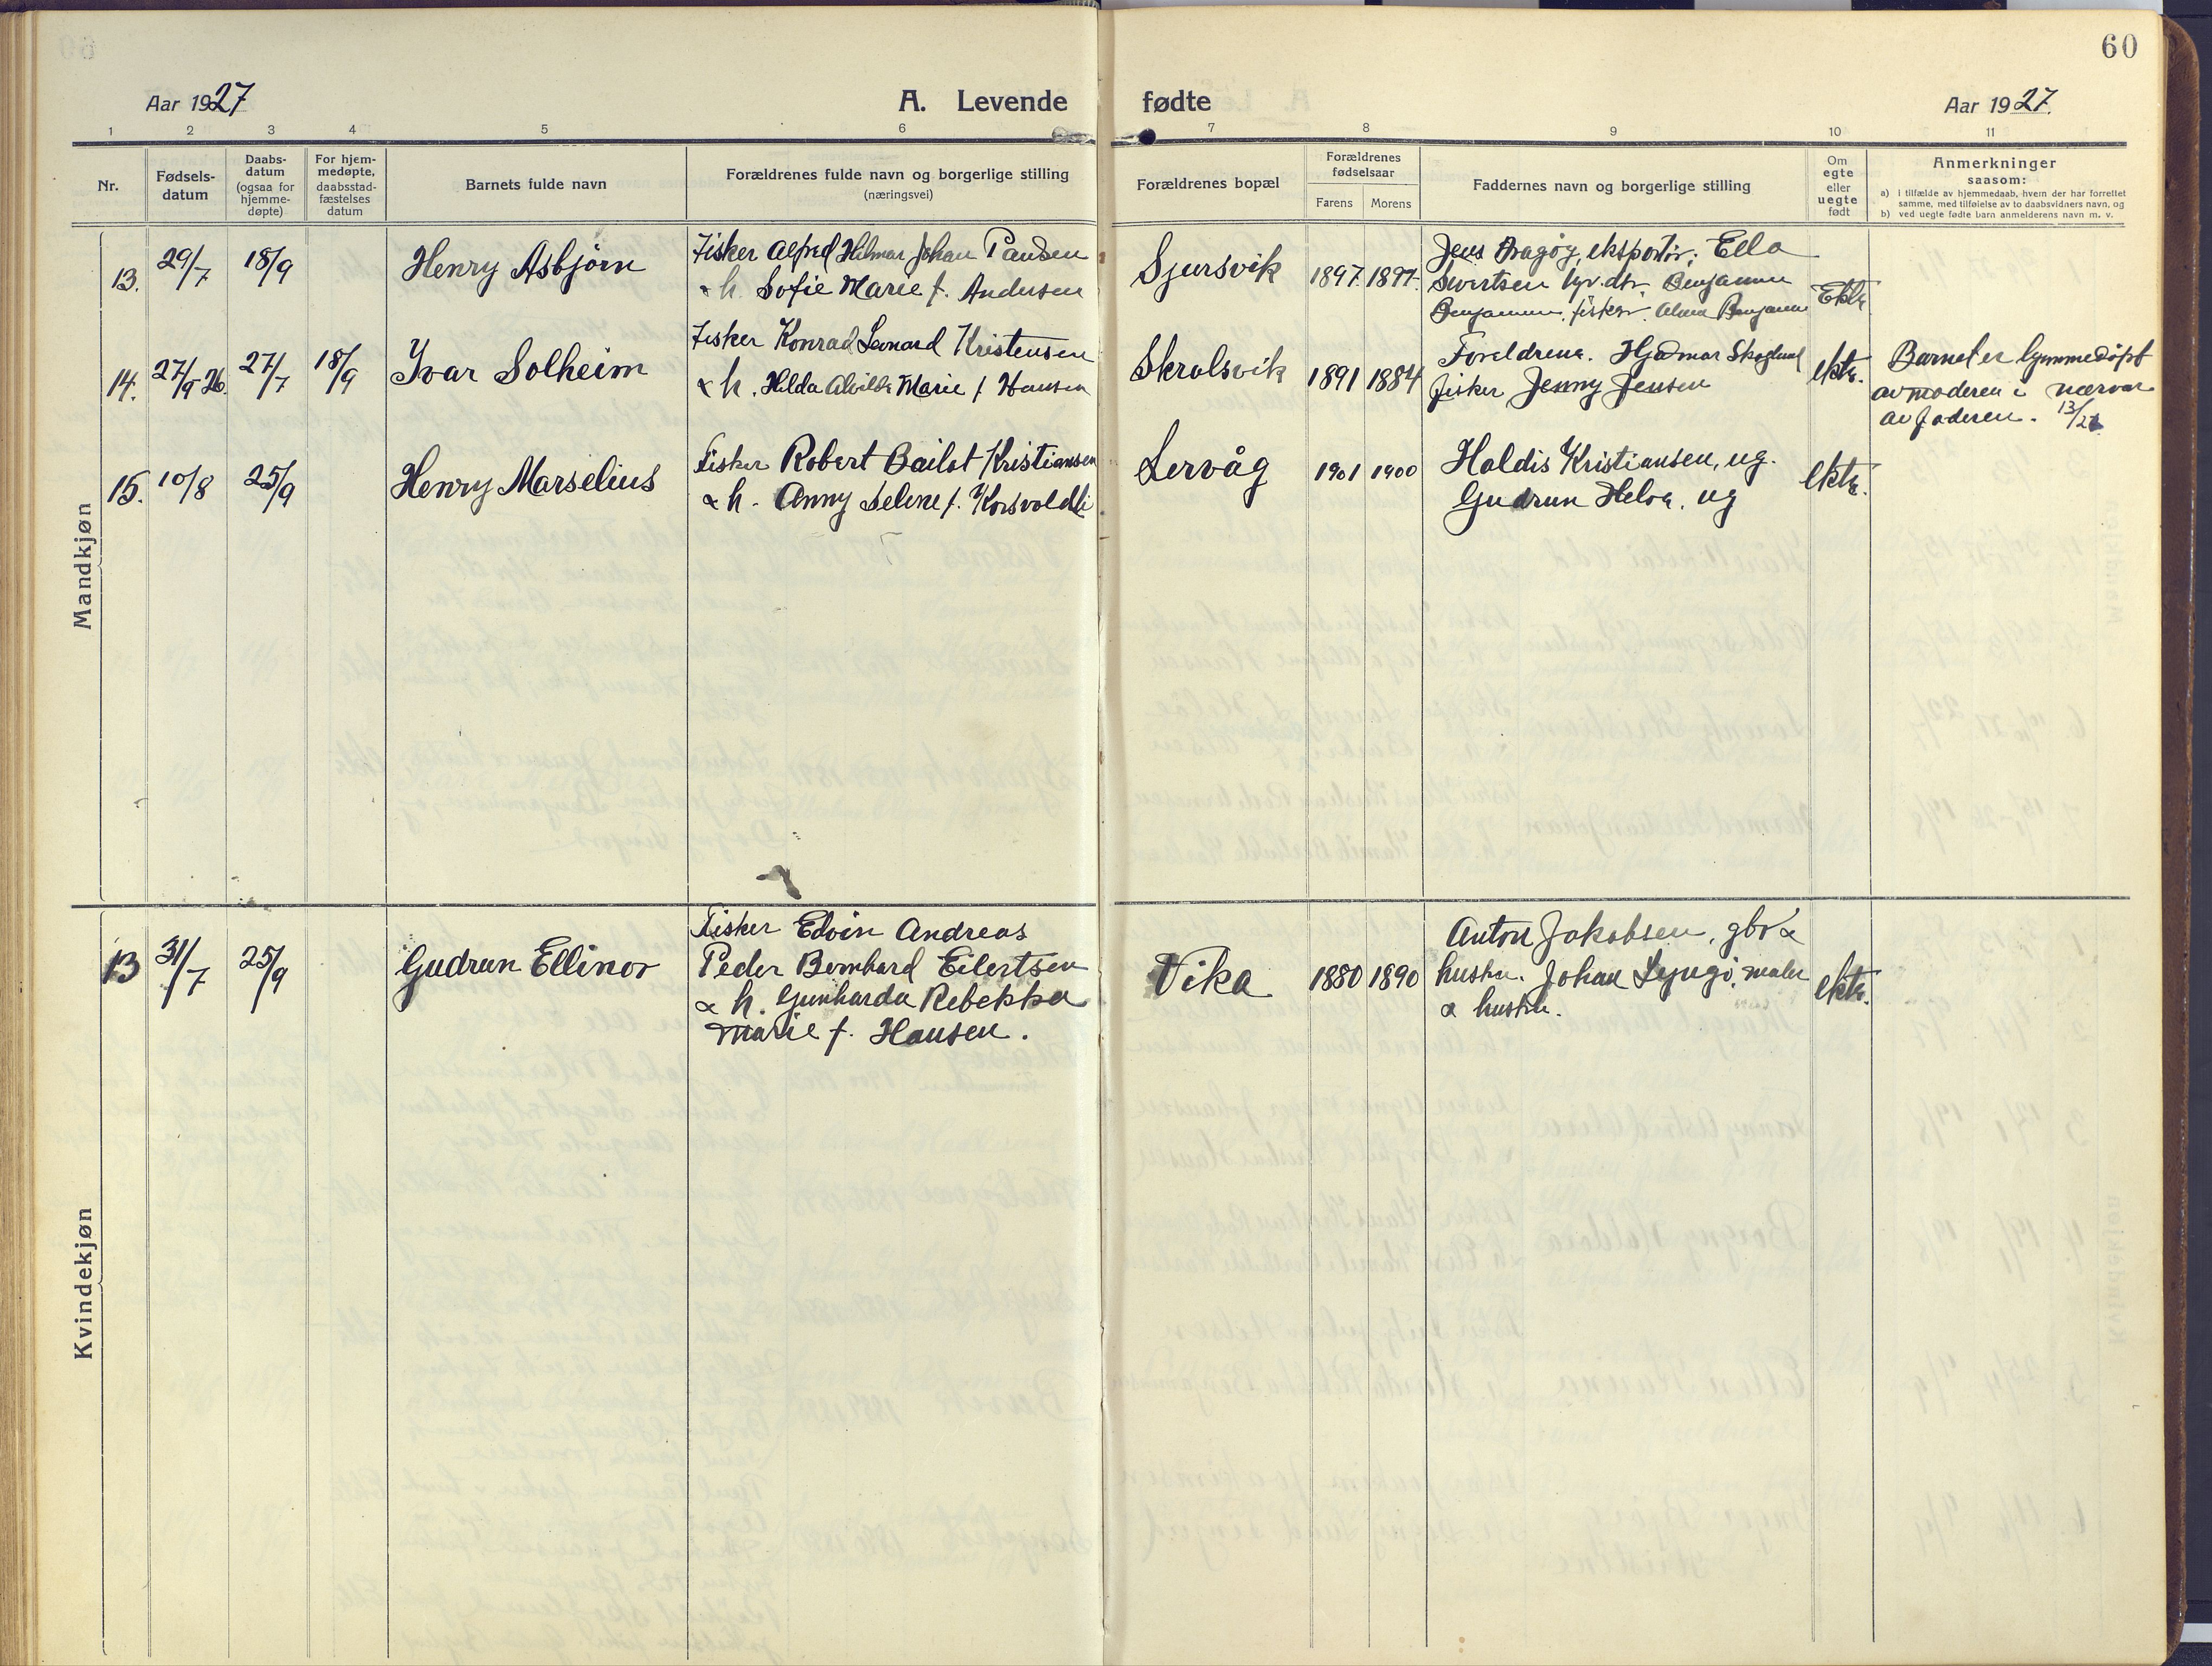 60
Aar 1927
A. Levende fødte
Aar 1927.
1 2 3 4 5 6 7 8 9 10 11
Nr.
Fødsels-
datum
Daabs-
datum
(ogsaa for
hjemme-
døpte)
For hjem-
medøpte,
daabsstad-
fæstelses
datum
Barnets fulde navn
Forældrenes fulde navn og borgerlige stilling
(næringsvei)
Forældrenes bopæl
Forældrenes
fødselsaar
Farens Morens
Faddernes navn og borgerlige stilling
Om
egte
eller
uegte
født
Anmerkninger
saasom:
a) i tilfælde av hjemmedaab, hvem der har forrettet
samme, med tilføielse av to daabsvidners navn, og
b) ved uegte fødte barn anmelderens navn m. v.
Mandkjøn
13. 29/7 18/9 Henry Asbjørn
Fisker Alfred Hilmar Johan Paulsen
& h. Sofie Marie f. Andersen
Sjursvik 1897 1897.
Jens Aragøy, eksportør; Ella
Sivertsen Benjamin
Benjaminsen, fisker, Alma Benjamin
Ekte
14. 27/9 26. 27/7 18/9 Ivar Solheim
Fisker Konrad Leonard Kristensen
& h. Hilda Alvilda Marie f. Hansen
Skrolsvik 1891 1884
Foreldrene. Hjalmar Skoglund
fisker Jenny Jensen
ekte.
Barnet er hjemmedøpt
av moderen i nærvær
av faderen. 13/
15. 10/8 25/9 Henry Marselius
Fisker Robert Bailot Kristiansen
& h. Anny Selene f. Korsvoldli
Lervåg 1901 1900
Haldis Kristiansen, ug.
Gudrun, ug
ekte.
Kvindekjøn
13 31/7 25/9 Gudrun Ellinor
Fisker Edvin Andreas
Peder Bernhard Eilertsen
& h. Gunharda Rebekka
Marie f. Hansen.
Vika 1880 1890
Anton Jakobsen, gbr &
hustru. Johan, maler
& hustru.
ekte.